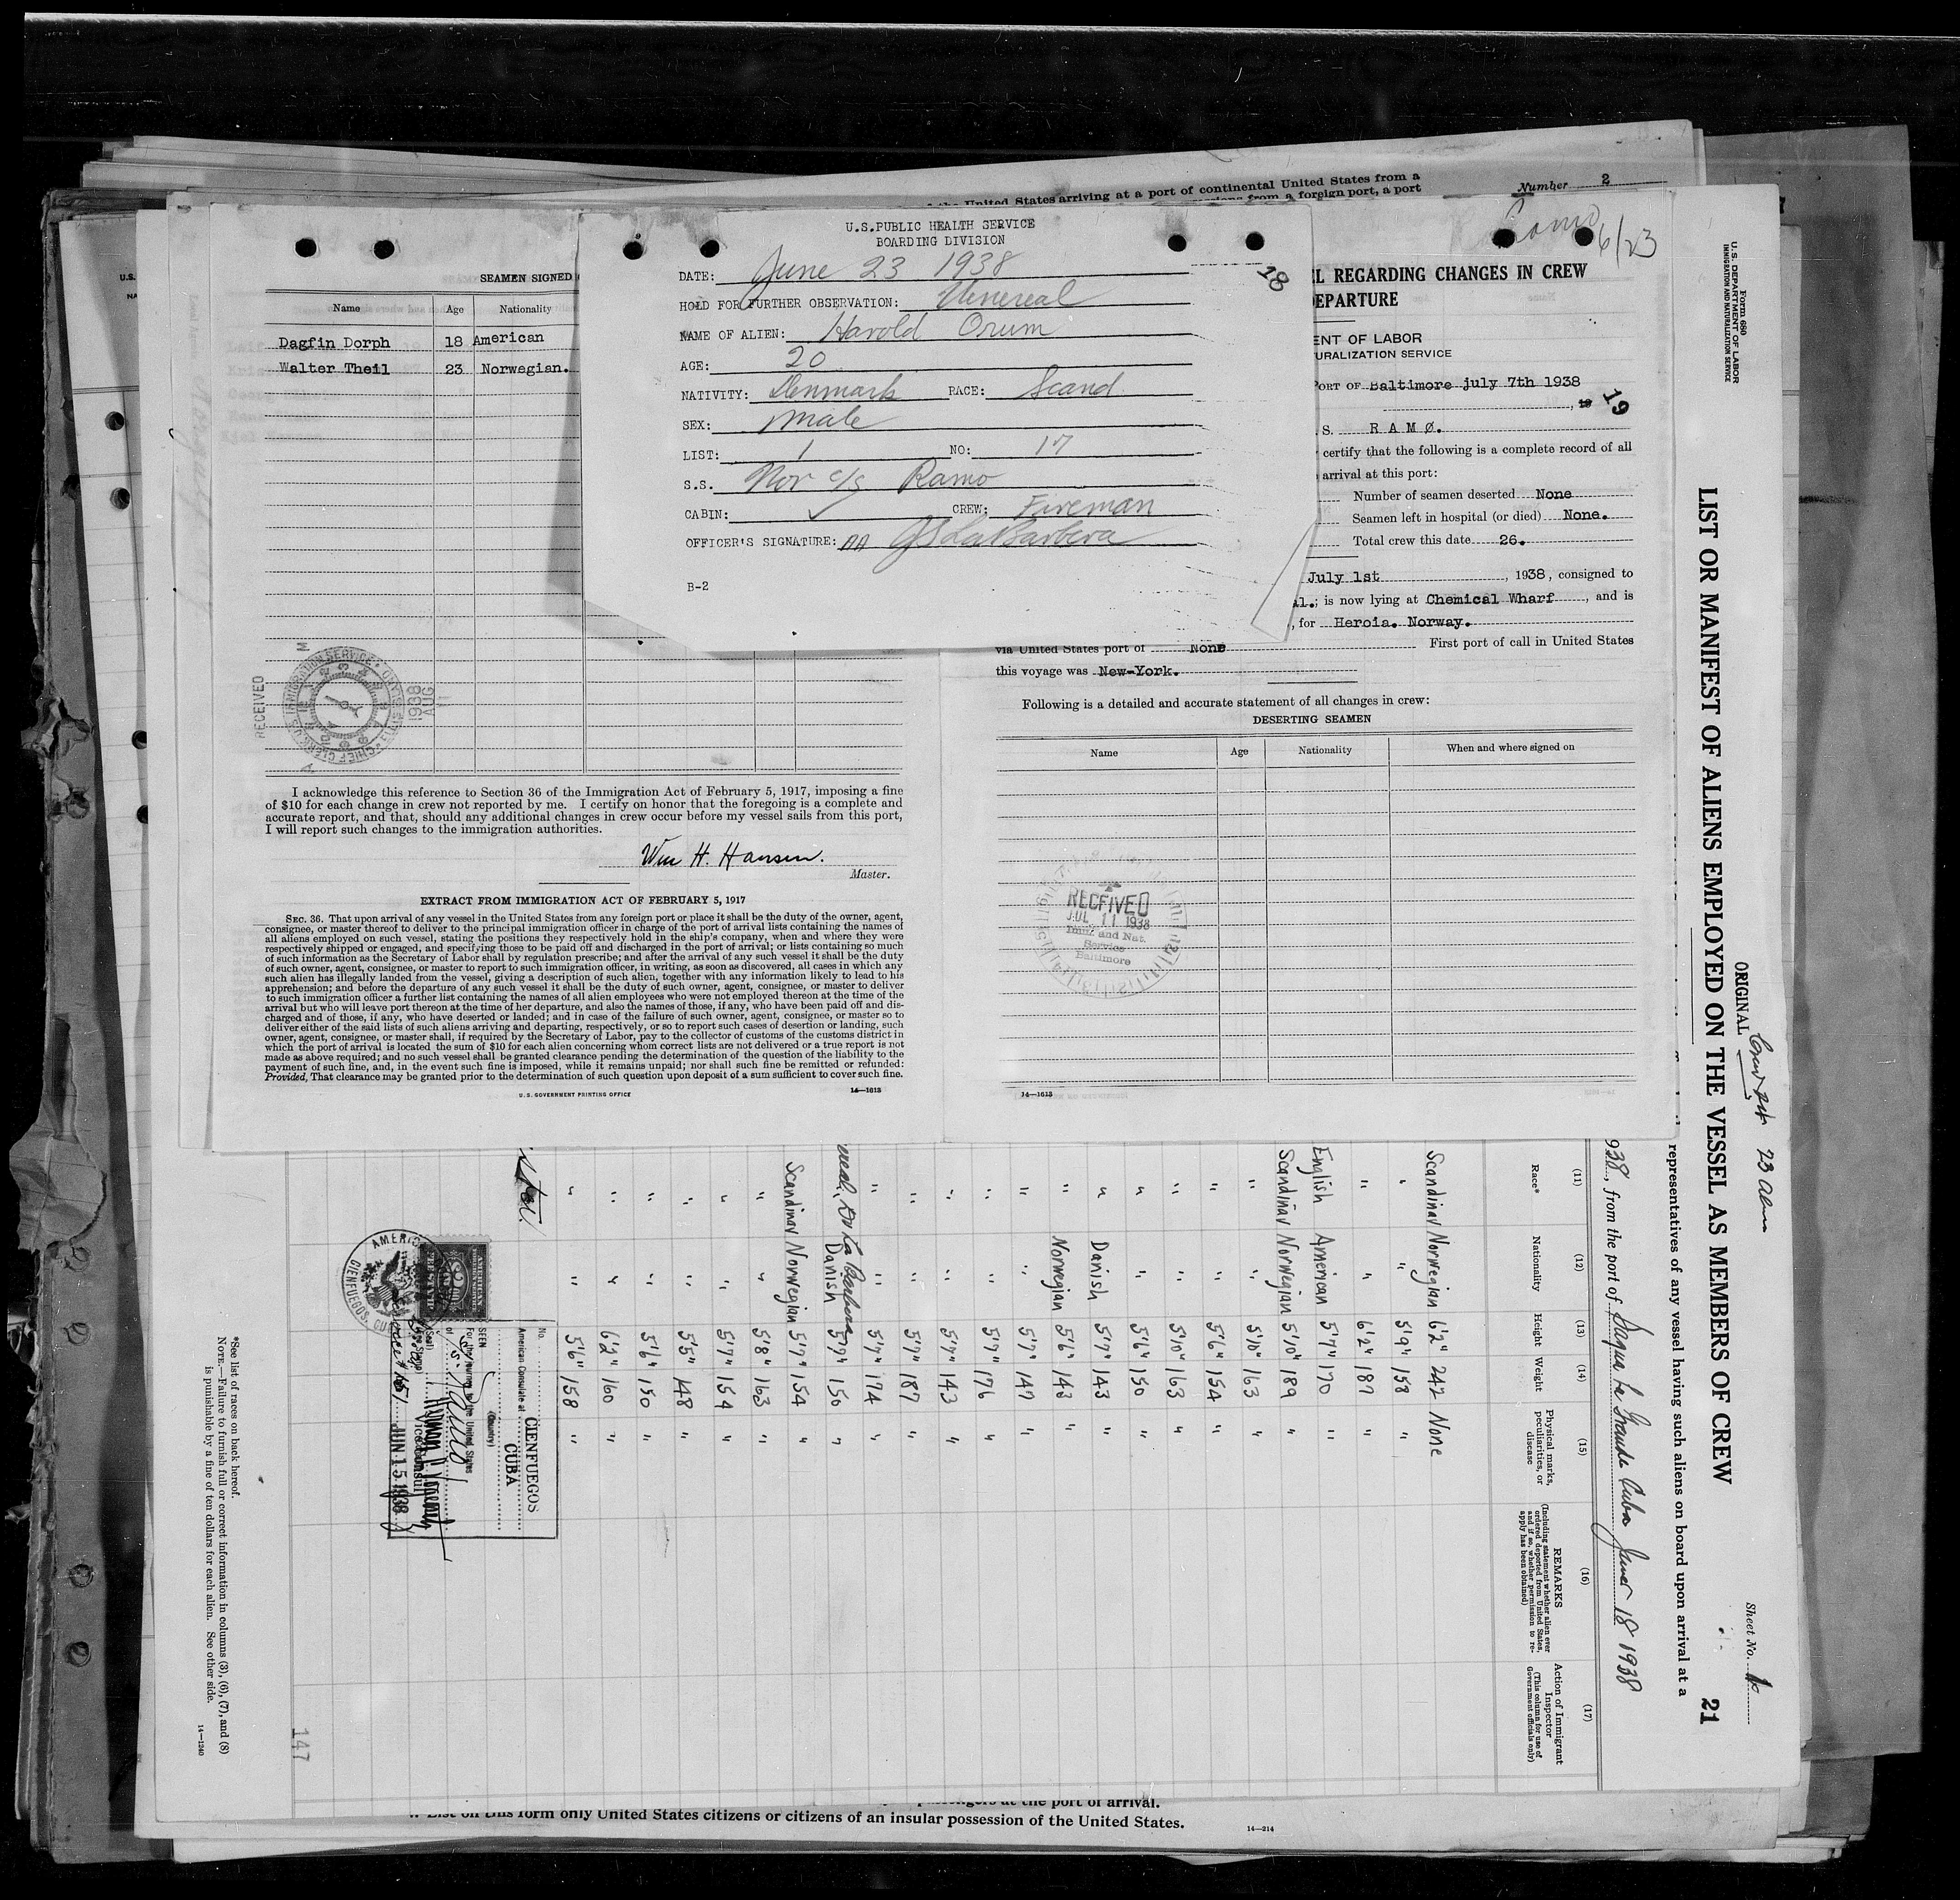 the United States arriving at a port of continental United States from a
from a foreign port, a port
Number 2
U.S. PUBLIC HEALTH SERVICE
BOARDING DIVISION
DATE: June 23 1938
HOLD FOR FURTHER OBSERVATION: Venereal
NAME OF ALIEN: Harold Orum
AGE: 20
NATIVITY: Denmark RACE: Scand.
SEX: male
LIST: 1 NO: 17
S.S. Nor c/s Ramo
CABIN: ✓ CREW: Fireman
OFFICER'S SIGNATURE: JS LaBarbera
B-2
18
SEAMEN SIGNED
Name Age Nationality
Dagfin Dorph 18 American
Walter Theil 23 Norwegian.
RECEIVED
1938
AUG
11
I acknowledge this reference to Section 36 of the Immigration Act of February 5, 1917, imposing a fine
of $10 for each change in crew not reported by me. I certify on honor that the foregoing is a complete and
accurate report, and that, should any additional changes in crew occur before my vessel sails from this port,
I will report such changes to the immigration authorities.
Wm H. Hansen.
Master.
EXTRACT FROM IMMIGRATION ACT OF FEBRUARY 5, 1917
SEC. 36. That upon arrival of any vessel in the United States from any foreign port or place it shall be the duty of the owner, agent,
consignee, or master thereof to deliver to the principal immigration officer in charge of the port of arrival lists containing the names of
all aliens employed on such vessel, stating the positions they respectively hold in the ship's company, when and where they were
respectively shipped or engaged, and specifying those to be paid off and discharged in the port of arrival; or lists containing so much
of such information as the Secretary of Labor shall by regulation prescribe; and after the arrival of any such vessel it shall be the duty
of such owner, agent, consignee, or master to report to such immigration officer, in writing, as soon as discovered, all cases in which any
such alien has illegally landed from the vessel, giving a description of such alien, together with any information likely to lead to his
apprehension; and before the departure of any such vessel it shall be the duty of such owner, agent, consignee, or master to deliver
to such immigration officer a further list containing the names of all alien employees who were not employed thereon at the time of the
arrival but who will leave port thereon at the time of her departure, and also the names of those, if any, who have been paid off and dis-
charged and of those, if any, who have deserted or landed; and in case of the failure of such owner, agent, consignee, or master so to
deliver either of the said lists of such aliens arriving and departing, respectively, or so to report such cases of desertion or landing, such
owner, agent, consignee, or master shall, if required by the Secretary of Labor, pay to the collector of customs of the customs district in
which the port of arrival is located the sum of $10 for each alien concerning whom correct lists are not delivered or a true report is not
made as above required; and no such vessel shall be granted clearance pending the determination of the question of the liability to the
payment of such fine, and, in the event such fine is imposed, while it remains unpaid; nor shall such fine be remitted or refunded:
Provided, That clearance may be granted prior to the determination of such question upon deposit of a sum sufficient to cover such fine.
U.S. GOVERNMENT PRINTING OFFICE 14—1613
6/23
L REGARDING CHANGES IN CREW
DEPARTURE
ENT OF LABOR
TURALIZATION SERVICE
PORT OF Baltimore july 7th 1938
19
S. RAMØ.
certify that the following is a complete record of all
arrival at this port:
Number of seamen deserted None
Seamen left in hospital (or died) None.
Total crew this date 26.
July 1st, 1938, consigned to
al.; is now lying at Chemical Wharf, and is
, for Heroia. Norway.
via United States port of None First port of call in United States
this voyage was New-York.
Following is a detailed and accurate statement of all changes in crew:
DESERTING SEAMEN
Name Age Nationality When and where signed on
RECEIVED
JUL 11 1938
Imm. and Nat.
Service
Baltimore
14—1613
Form 680
U.S. DEPARTMENT OF LABOR
IMMIGRATION AND NATURALIZATION SERVICE
ORIGINAL
Sheet No. 1
LIST OR MANIFEST OF ALIENS EMPLOYED ON THE VESSEL AS MEMBERS OF CREW
21
representatives of any vessel having such aliens on board upon arrival at a
938, from the port of Sagua la Grande Cuba June 18 1938
(11) (12) (13) (14) (15) (16) (17)
Race* Nationality Height Weight Physical marks, peculiarities, or disease REMARKS (Including statement whether alien ever ordered deported from United States, and if so, whether permission to re-apply has been obtained) Action of Immigrant Inspector (This column for use of Government officials only)
Scandinav Norwegian 6'2" 242 None
" " 5'9" 158 "
" " 6'2" 187 "
English American 5'7" 170 "
Scandinav Norwegian 5'10" 189 "
" " 5'10" 163 "
" " 5'6" 154 "
" " 5'10" 163 "
" " 5'6" 150 "
" Danish 5'7" 143 "
" Norwegian 5'6" 143 "
" " 5'7" 147 "
" " 5'7" 176 "
" " 5'7" 143 "
" " 5'7" 187 "
" " 5'7" 174 "
Danish 5'7" 150 "
Scandinav Norwegian 5'7" 154 "
" " 5'8" 163 "
" " 5'7" 154 "
" " 5'5" 148 "
" " 5'6" 150 "
" " 6'2" 160 "
" " 5'6" 158 "
No.
American Consulate at CIENFUEGOS
CUBA
(Country)
SEEN
For the journey to the United States
of
Vice Consul
JUN 15 1938
AMERICAN
CIENFUEGOS, CUBA
*See list of races on back hereof.
NOTE.—Failure to furnish full or correct information in columns (3), (6), (7), and (8)
is punishable by a fine of ten dollars for each alien. See other side.
14—1240
147
at the port of arrival.
List on this form only United States citizens or citizens of an insular possession of the United States.
14—214